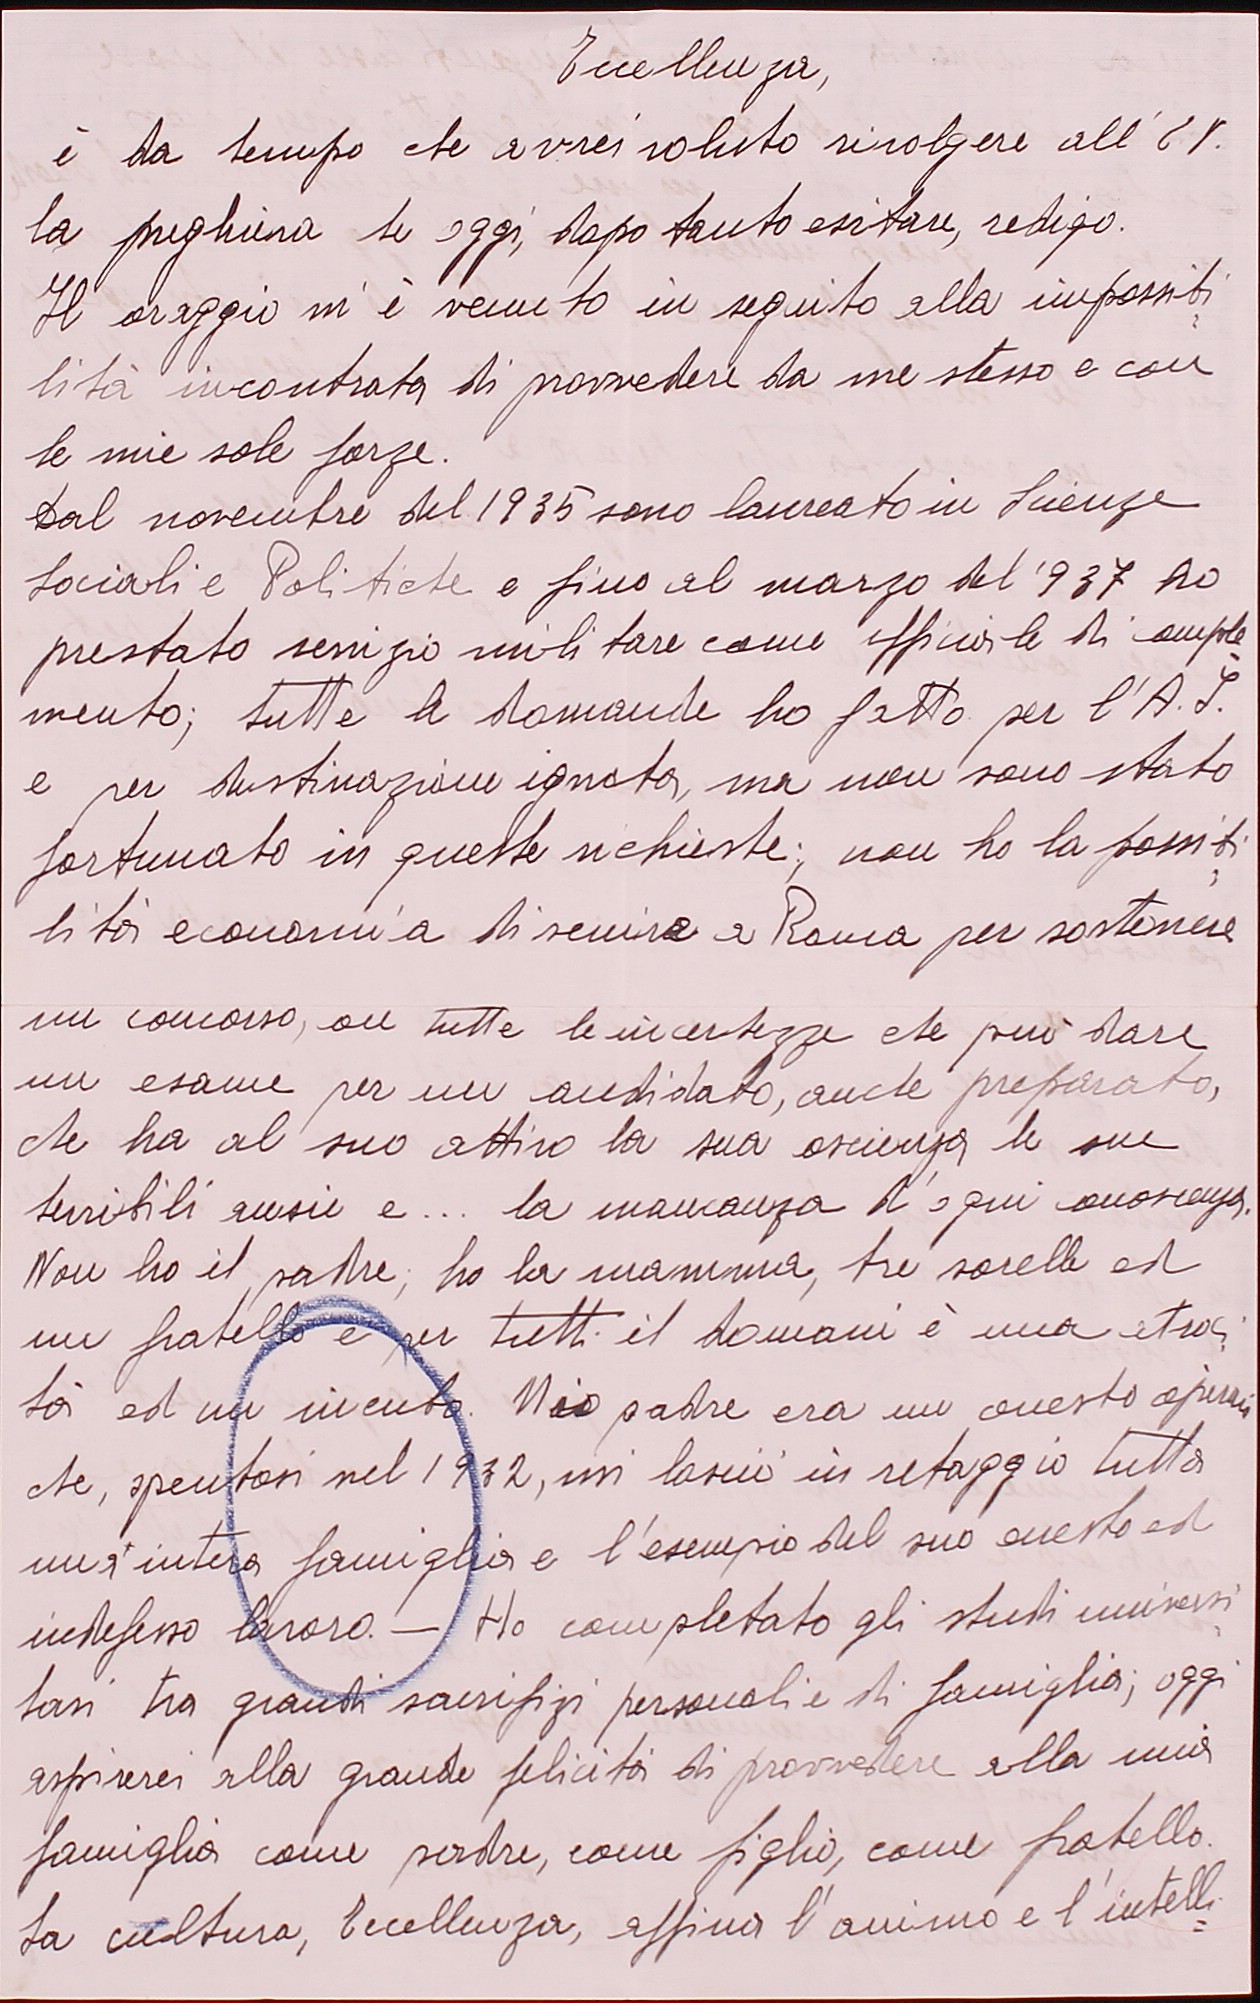 Eccellenza,
è da tempo che avrei voluto rivolgere all'E.V.
la preghiera che oggi, dopo tanto esitare, redigo.
Il coraggio m'è venuto in seguito alla impossibi-
lità incontrata di provvedere da me stesso e con
le mie sole forze.
Dal novembre del 1935 sono laureato in Scienze
Sociali e Politiche e fino al marzo del '937 ho
prestato servizio militare come ufficiale di comple-
mento; tutte le domande ho fatto per l'A.I.
e per destinazione ignota, ma non sono stato
fortunato in queste richieste; non ho la possibi-
lità economica di venire a Roma per sostenere
un concorso, con tutte le incertezze che può dare
un esame per un candidato, anche preparato,
che ha al suo attivo la sua coscienza le sue
terribili ansie e... la mancanza d'ogni conoscenza.
Non ho il padre; ho la mamma, tre sorelle ed
un fratello e per tutti il domani è una atroci-
tà ed un incubo. Mio padre era un onesto operaio
che, spentosi nel 1932, mi lasciò in retaggio tutta
un'intera famiglia e l'esempio del suo onesto ed
indefesso lavoro. — Ho completato gli studi universi-
tari tra grandi sacrifizi personali e di famiglia; oggi
aspirerei alla grande felicità di provvedere alla mia
famiglia come padre, come figlio, come fratello.
La cultura, Eccellenza, affina l'animo e l'intelli-